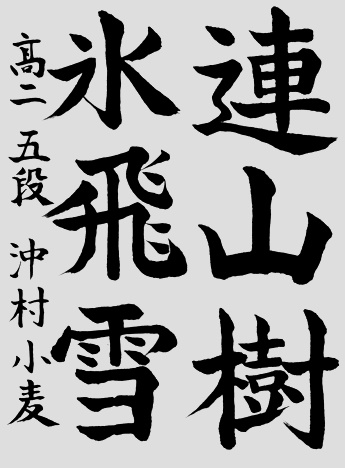 連山樹
氷飛雪
高二 五段 沖村小麦